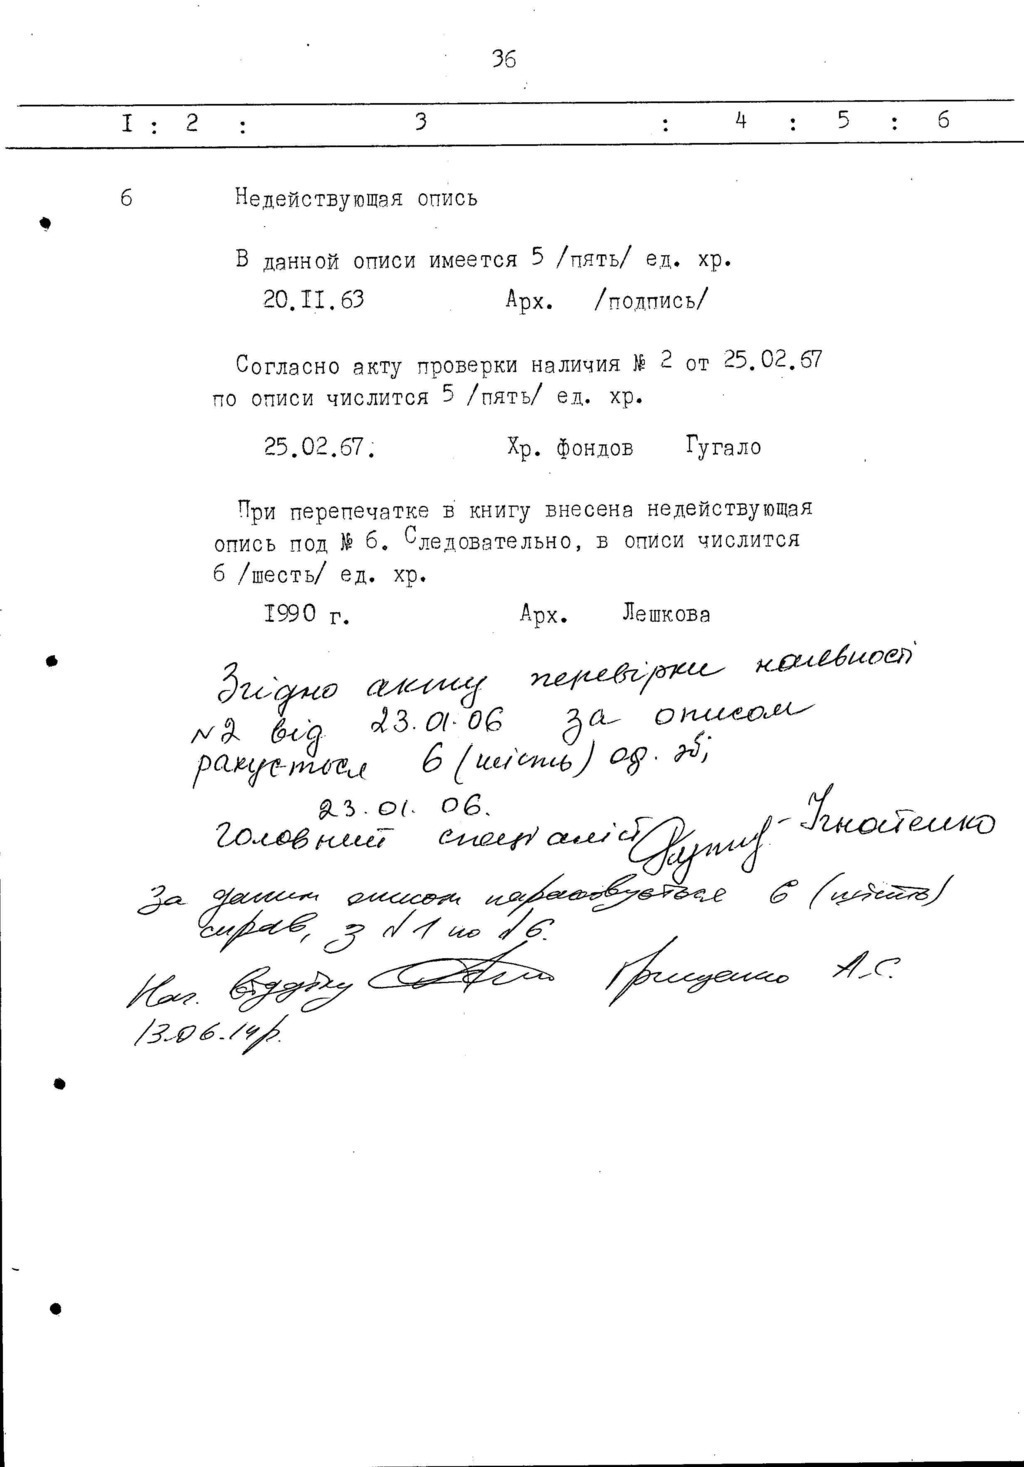 36
I : 2 : 3 : 4 : 5 : 6
6 Недействующая опись
В данной описи имеется 5 /пять/ ед. хр.
20.II.63 Арх. /подпись/
Согласно акту проверки наличия № 2 от 25.02.67
по описи числится 5 /пять/ ед. хр.
25.02.67. Хр. фондов Гугало
При перепечатке в книгу внесена недействующая
опись под № 6. Следовательно, в описи числится
6 /шесть/ ед. хр.
1990 г. Арх. Лешкова
Згідно акту перевірки наявності
№2 від 23.01.06 за описом
рахується 6 (шість) од. зб,
23.01.06.
Головний спеціаліст Ігнатенко
За даним описом нараховується 6 (шість)
справ, з №1 по №6.
Нач. відділу Грищенко А.С.
13.06.14р.